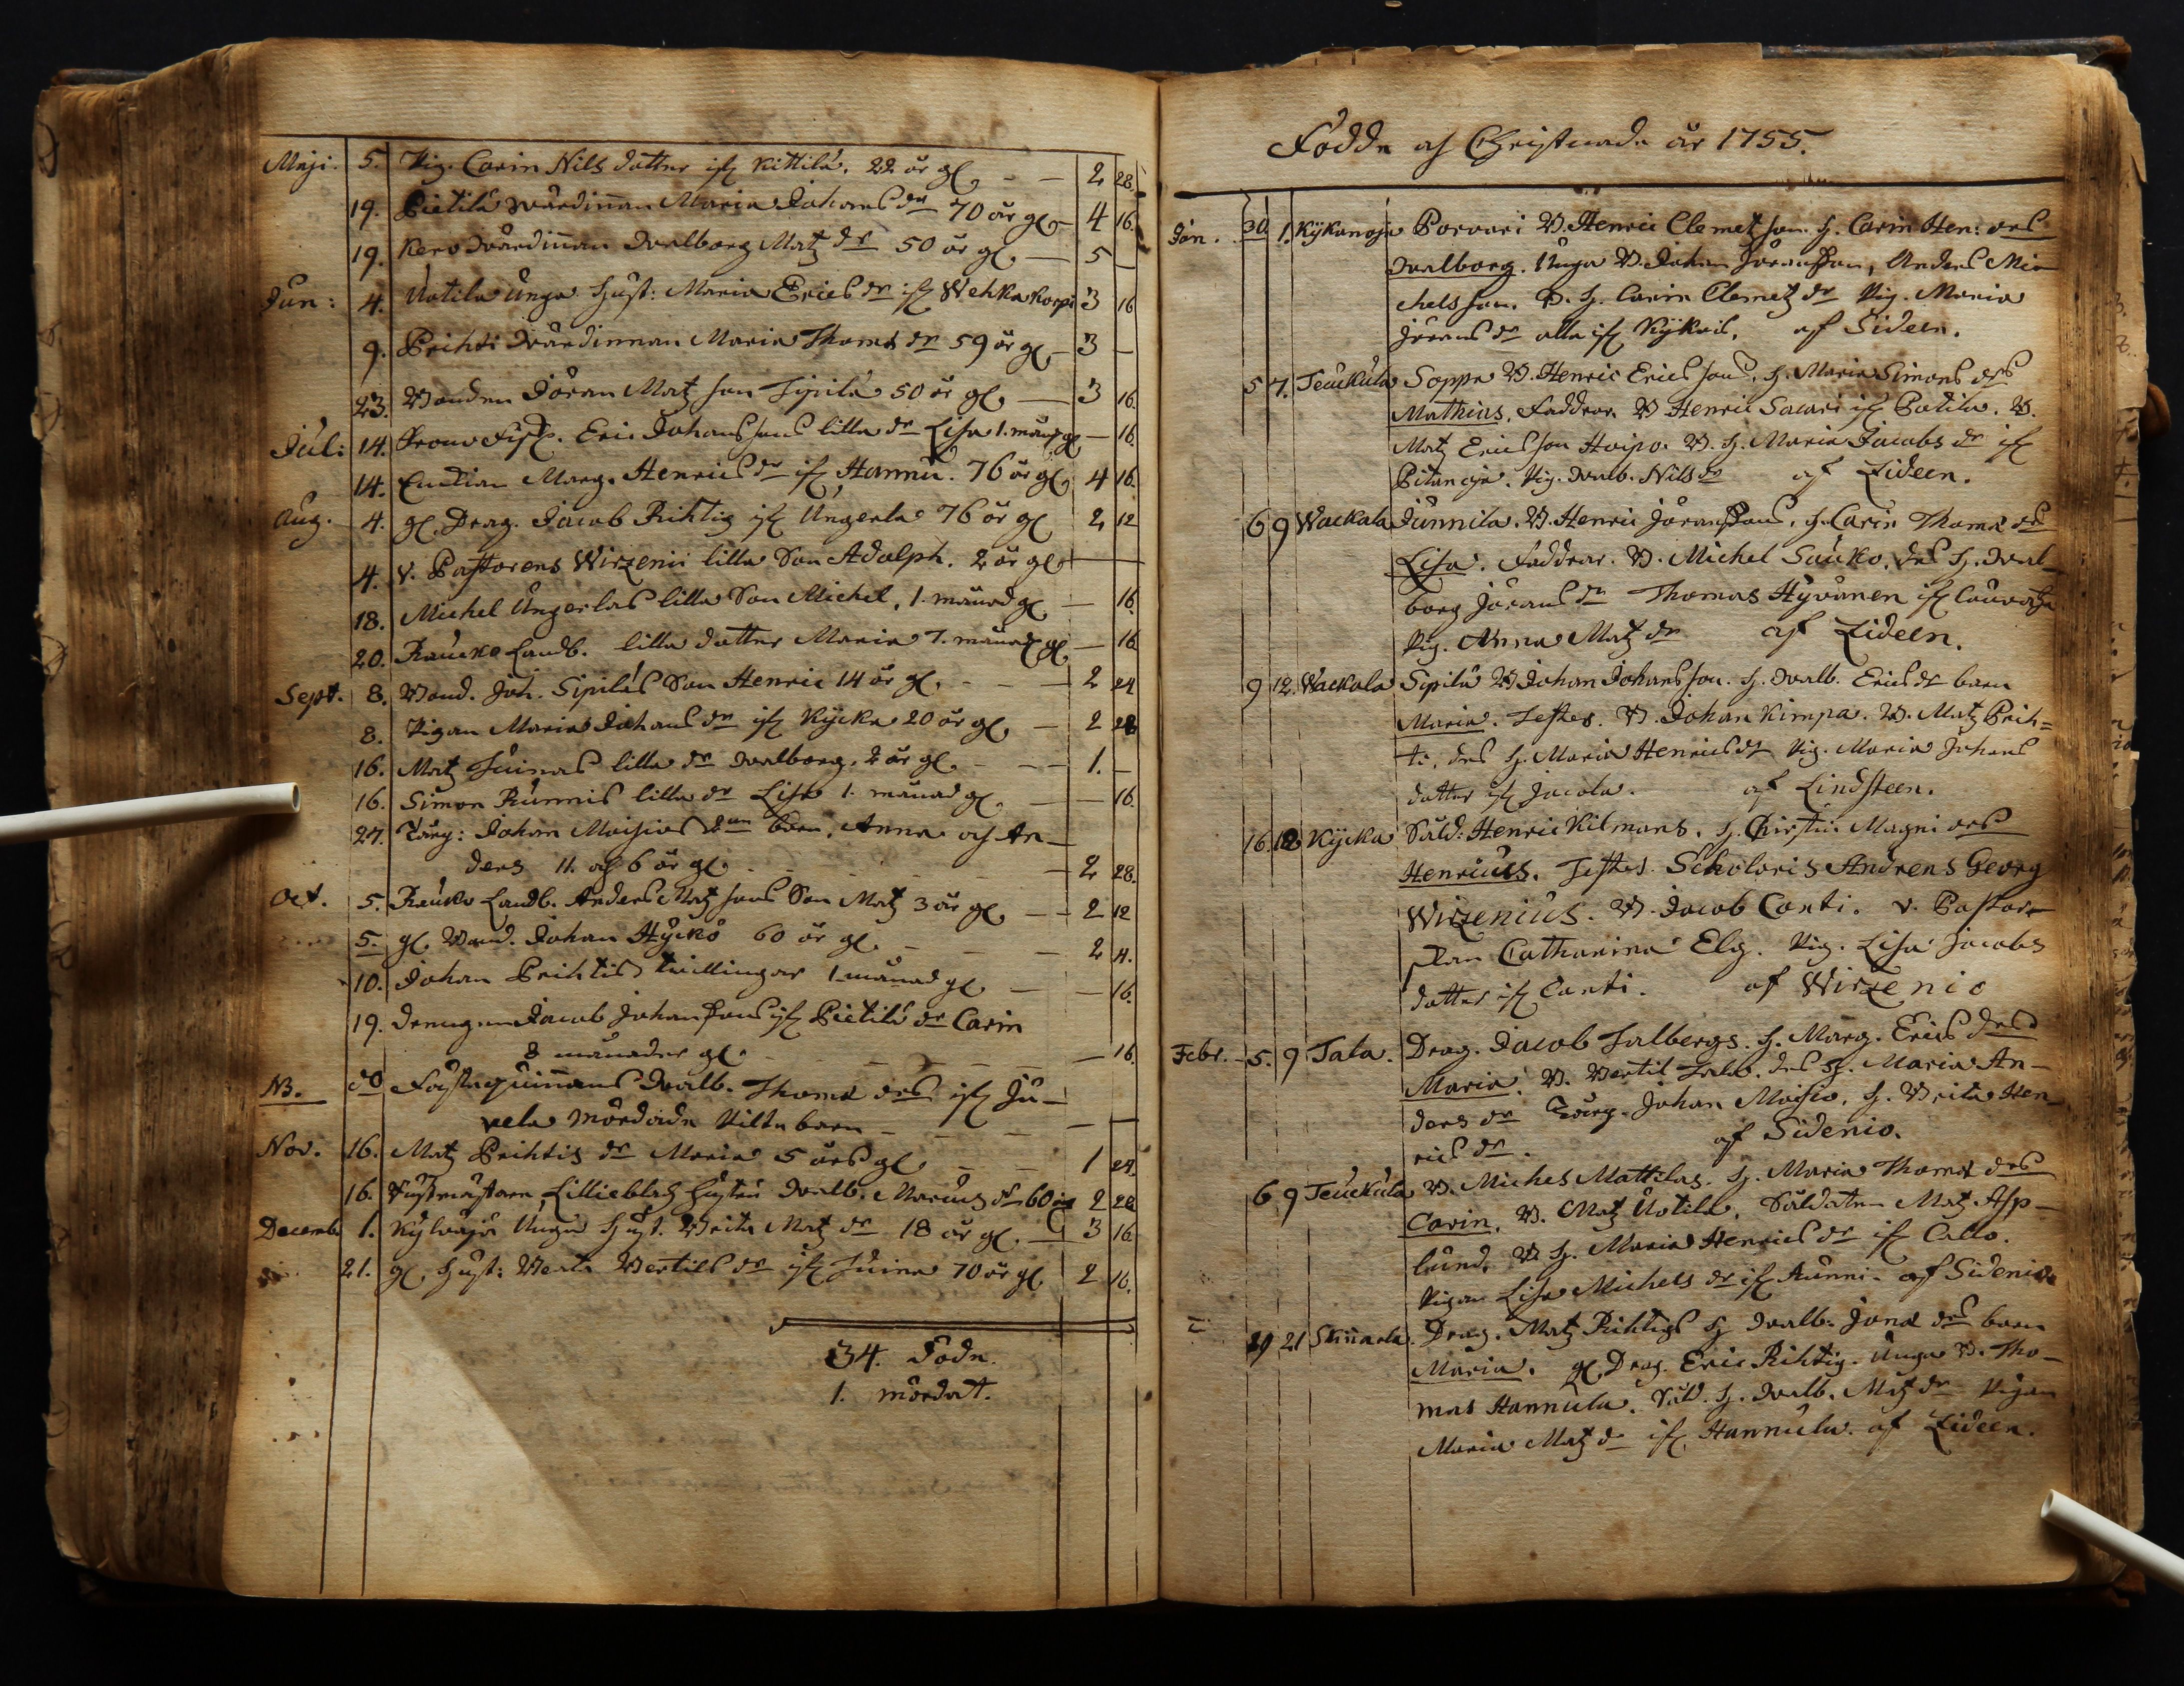 Maji. 5. Pig. Carin Nils dotter ifr. Kittilä. 22 år gl. 2 28
19. Pietilä wärdinnan Maria Johans dr 70 år gl. 4 16
19. Kero wärdinnan Walborg Matz dr 50 år gl. 5 —
Jun: 4. Uotila Unga Hust: Maria Erics dr ifr. Wehkakorpi 3 16
9. Prihti Wärdinnan Maria Thomæ dr 59 år gl. 3 —
23. Bonden Jöran Matz son Sipilä 50 år gl. 3 16.
Jul: 14. Eric Johanssons lilla dr Lisa 1. mån. gl. — 16.
14. Enckian Marg. Henrics dr ifr. Hannu. 76 år gl. 4 16.
Aug. 4. gl. Drag. Jacob Rihtig ifr. Ungerla 76 år gl. 2 12
4. v. Pastorens Wirzenii lilla Son Adolph. 2 år gl.
18. Michel Ungerlas lilla Son Michel, 1. månad gl. — 16.
20. Raucko Landb. lilla dotter Maria 7. månad gl. — 16
Sept. 8. Bond. Joh. Sipiläs Son Henric 14 år gl. 2 24
8. Pigan Maria Johans dr ifr. Kycka 20 år gl. 2 28
16. Matz Tuimas lilla dr Walborg. 2 år gl. 1. —
16. Simon Runnis lilla dr Lisa 1. månad gl. — 16.
27. Torp: Johan Maisios barn, Anna och An-
ders 11. och 6 år gl. 2 28.
Oct. 5. Rauko Landb. Anders Matz sons Son Matz 3 år gl. 2 12
5. gl. Bond. Johan Hyckö 60 år gl. 2 4.
10. Johan Prihtis twillingar 1. månad gl. — 16.
19. Drengen Jacob Johanssons ifr. Pietilä dr Carin
8 månader gl. — 16.
NB. do Walb. Thomæ drs ifr. Ju-
vela mördade barn —
Nov. 16. Matz Prihtis dr Maria 5 års gl. 1 24.
16. Lillieblads hustru Walb. Marcus dr 60 2 28
Decemb. 1. Kylänpä Unga Hust. Brita Matz dr 18 år gl. 3 16.
21. gl. Hust: Berta Bertils dr ifr. Tuima 70 år gl. 2 16.
34. Döde.
1. mördat.
Födde och Christnade år 1755.
Jan. 30 1. Kykanoja Porvari B. Henric Clemetson. h. Carin Hen: drs
Walborg. Unga B. Johan Jöransson, Anders Mi-
chelsson. B. h. Carin Clemetz dr Pig. Maria
Jörans dr alla ifr. Kykois. af Sideen.
5 7. Teuckula Soppa B. Henric Ericssons, h. Maria Simons drs
Mathias. Faddrar. B Henric Sacari ifr. Potila. B.
Matz Ericsson Hoipo. B. h. Maria Jacobs dr ifr.
Pitanoja. Pig. Walb. Nils dr af Zideen.
6 9 Wackala Junnila. B. Henric Jöranssons, h. Carin Thomæ drs
Lisa. Faddrar. B. Michel Sauko, des h. Wal-
borg Jörans dr Thomas Hyvänen ifr.
Pig. Anna Matz dr af Zideen.
9 12. Wackala Sipilä B Johan Johansson. h. Walb. Erics dr barn
Maria. Testes. B. Johan Kimpa. B. Matz Prih=
ti, des h. Maria Henrics dr Pig. Maria Johans
dotter ifr. Jacola. af Lindsteen.
16. 18 Kycka Sold: Henric Kilmans. h. Christin Magni drs
Henricus. Testes. Scholaris Andreas Georg
Wirzenius. B. Jacob Conti. v. Pastor-
skan Catharina Elg. Pig. Lisa Jacobs
dotter ifr. Conti. af Wirzenio
Febr. 5. 9 Tala. Drag. Jacob Talbergs. h. Marg. Erics drs
Maria. B. Bertil Tala. des h. Maria An-
ders dr Torp. Johan Maisio. h. Brita Hen-
rics dr. af Sidenio.
6 9 Teuckula B. Michel Mattilas. h. Maria Thomæ drs
Carin. B. Matz Uotila. Soldaten Matz Asp-
lund. B h. Maria Henrics dr ifr. Callo.
Pigan Lisa Michels dr ifr. Runni. af Sidenio
19 21 Skinnarla. Drag. Matz Rihtigs h Walb: Jonæ drs barn
Maria. gl. Drag. Eric Rihtig. Unga B. Tho-
mas Hannula. Sold. h. Walb. Matz dr Pigan
Maria Matz dr ifr. Hannula. af Zideen.